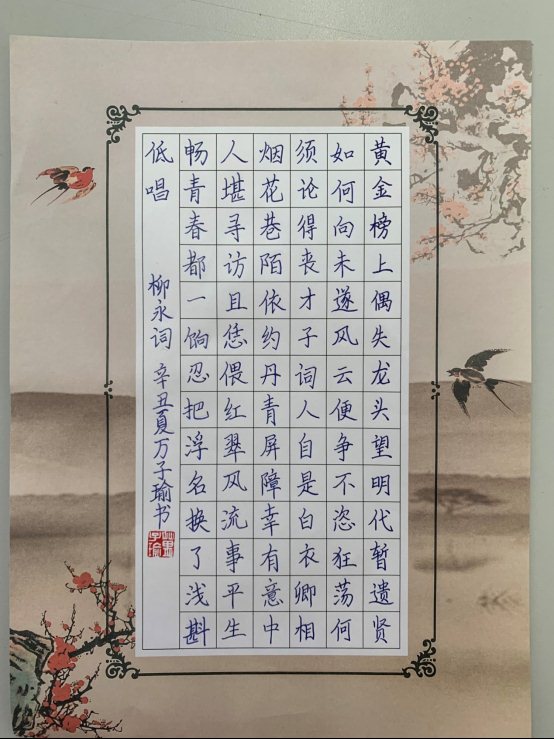 黄金榜上偶失龙头望明代暂遗贤
如何向未遂风云便争不恣狂荡何
须论得丧才子词人自是白衣卿相
烟花巷陌依约丹青屏障幸有意中
人堪寻访且恁偎红翠风流事平生
畅青春都一饷忍把浮名换了浅斟
低唱
柳永词 辛丑夏万子瑜书